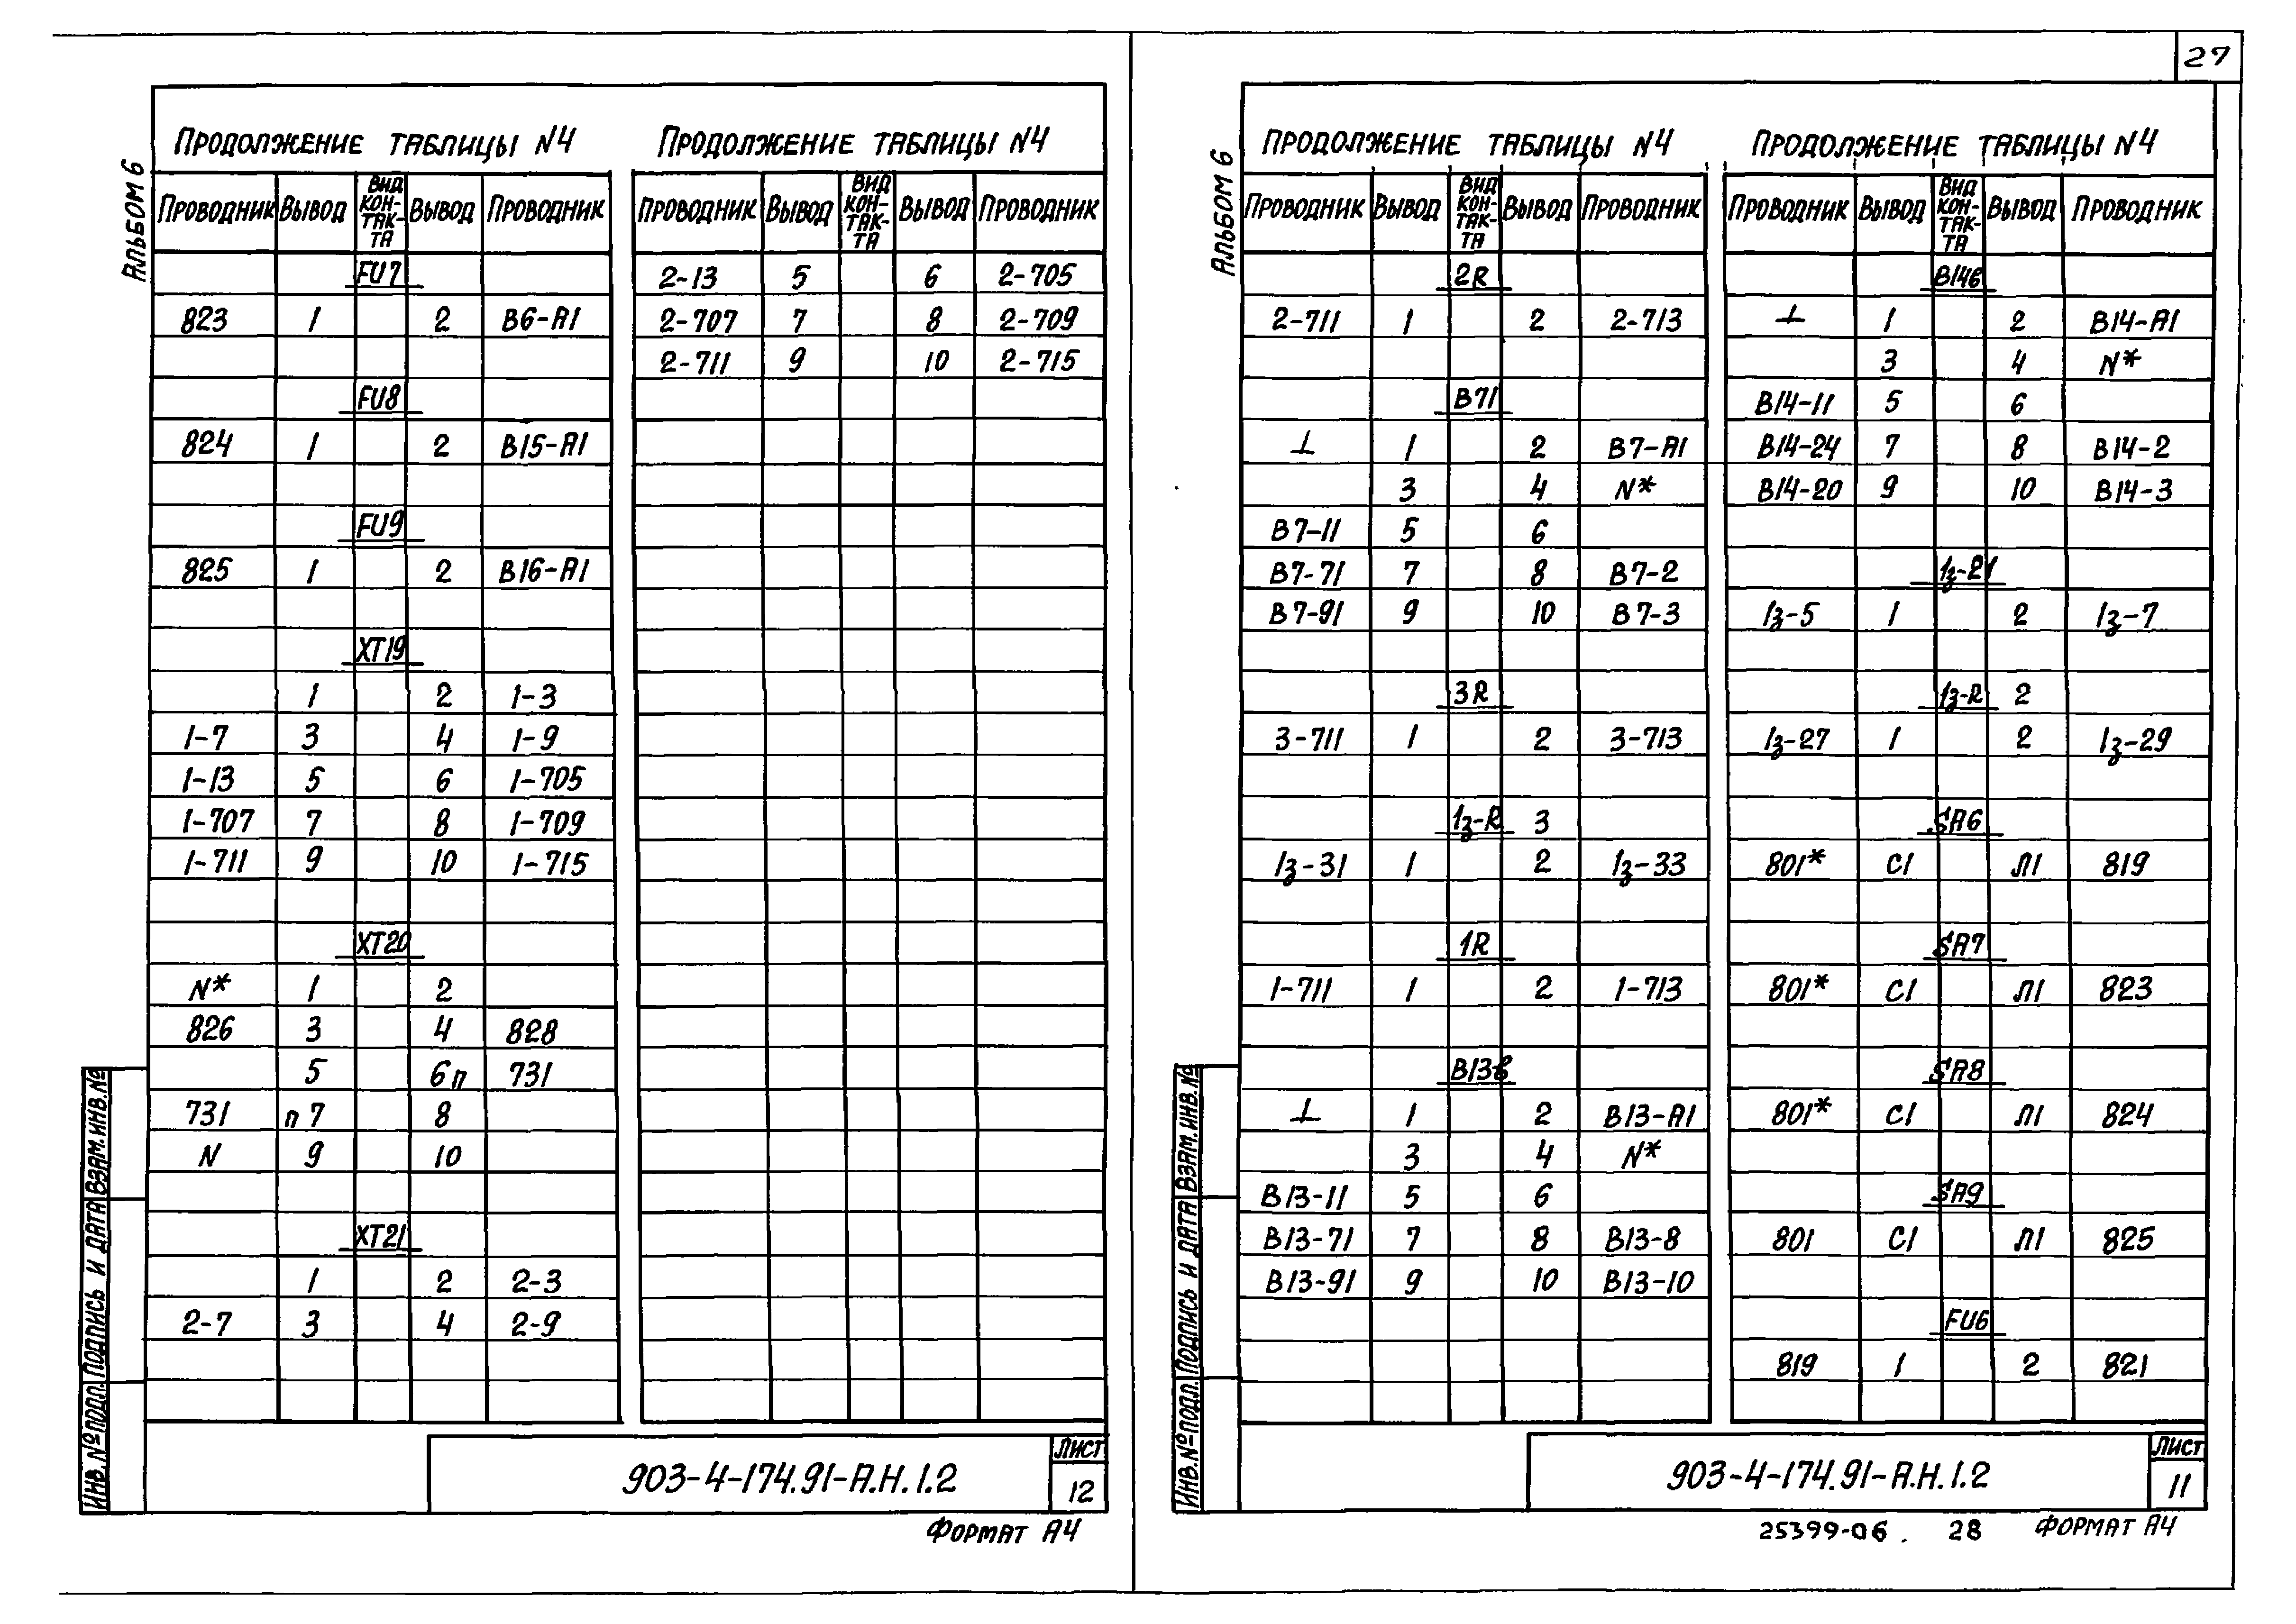 27
АЛЬБОМ 6
ПРОДОЛЖЕНИЕ ТАБЛИЦЫ N4
ПРОВОДНИК ВЫВОД ВИД КОН-ТАК-ТА ВЫВОД ПРОВОДНИК
FU7
823 1 2 В6-А1
FU8
824 1 2 В15-А1
FU9
825 1 2 В16-А1
XT19
1 2 1-3
1-7 3 4 1-9
1-13 5 6 1-705
1-707 7 8 1-709
1-711 9 10 1-715
XT20
N* 1 2
826 3 4 828
5 6п 731
731 п7 8
N 9 10
XT21
1 2 2-3
2-7 3 4 2-9
ПРОДОЛЖЕНИЕ ТАБЛИЦЫ N4
ПРОВОДНИК ВЫВОД ВИД КОН-ТАК-ТА ВЫВОД ПРОВОДНИК
2-13 5 6 2-705
2-707 7 8 2-709
2-711 9 10 2-715
ИНВ. №ПОДЛ. ПОДПИСЬ И ДАТА ВЗАМ.ИНВ.№
903-4-174.91-А.Н.1.2
ЛИСТ
12
ФОРМАТ А4
АЛЬБОМ 6
ПРОДОЛЖЕНИЕ ТАБЛИЦЫ N4
ПРОВОДНИК ВЫВОД ВИД КОН-ТАК-ТА ВЫВОД ПРОВОДНИК
2R
2-711 1 2 2-713
В71
⊥ 1 2 В7-А1
3 4 N*
В7-11 5 6
В7-71 7 8 В7-2
В7-91 9 10 В7-3
3R
3-711 1 2 3-713
1з-R 3
1з-31 1 2 1з-33
1R
1-711 1 2 1-713
В13в
⊥ 1 2 В13-А1
3 4 N*
В13-11 5 6
В13-71 7 8 В13-8
В13-91 9 10 В13-10
ПРОДОЛЖЕНИЕ ТАБЛИЦЫ N4
ПРОВОДНИК ВЫВОД ВИД КОН-ТАК-ТА ВЫВОД ПРОВОДНИК
В14в
⊥ 1 2 В14-А1
3 4 N*
В14-11 5 6
В14-24 7 8 В14-2
В14-20 9 10 В14-3
1з-21
1з-5 1 2 1з-7
1з-R 2
1з-27 1 2 1з-29
SA6
801* С1 Л1 819
SA7
801* С1 Л1 823
SA8
801* С1 Л1 824
SA9
801 С1 Л1 825
FU6
819 1 2 821
ИНВ.№ПОДЛ. ПОДПИСЬ И ДАТА ВЗАМ.ИНВ.№
903-4-174.91-А.Н.1.2
ЛИСТ
11
25399-06. 28 ФОРМАТ А4